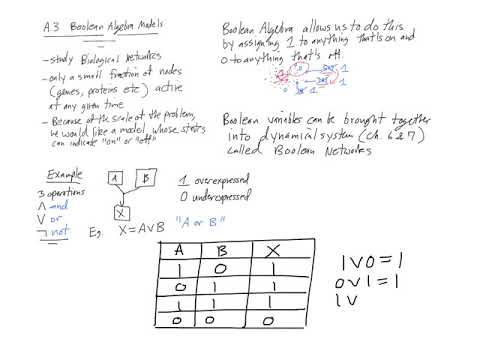 A.3 Boolean Algebra Models
- study Biological networks
- only a small fraction of nodes
(genes, proteins etc) active
at any given time
- Because of the scale of the problem,
we would like a model, whose states
can indicate "on" or "off"
Boolean Algebra allows us to do this
by assigning 1 to anything that's on and
0 to anything that's off:
Boolean variables can be brought together
into dynamical system (Ch. 6&7)
called Boolean Networks
Example
3 operations
∧ and
∨ or
¬ not
A
B
X
1 overexpressed
0 underexpressed
Eg. X=A∨B "A or B"
A B X
1 0 1
0 1 1
1 1 1
0 0 0
1∨0=1
0∨1=1
1∨